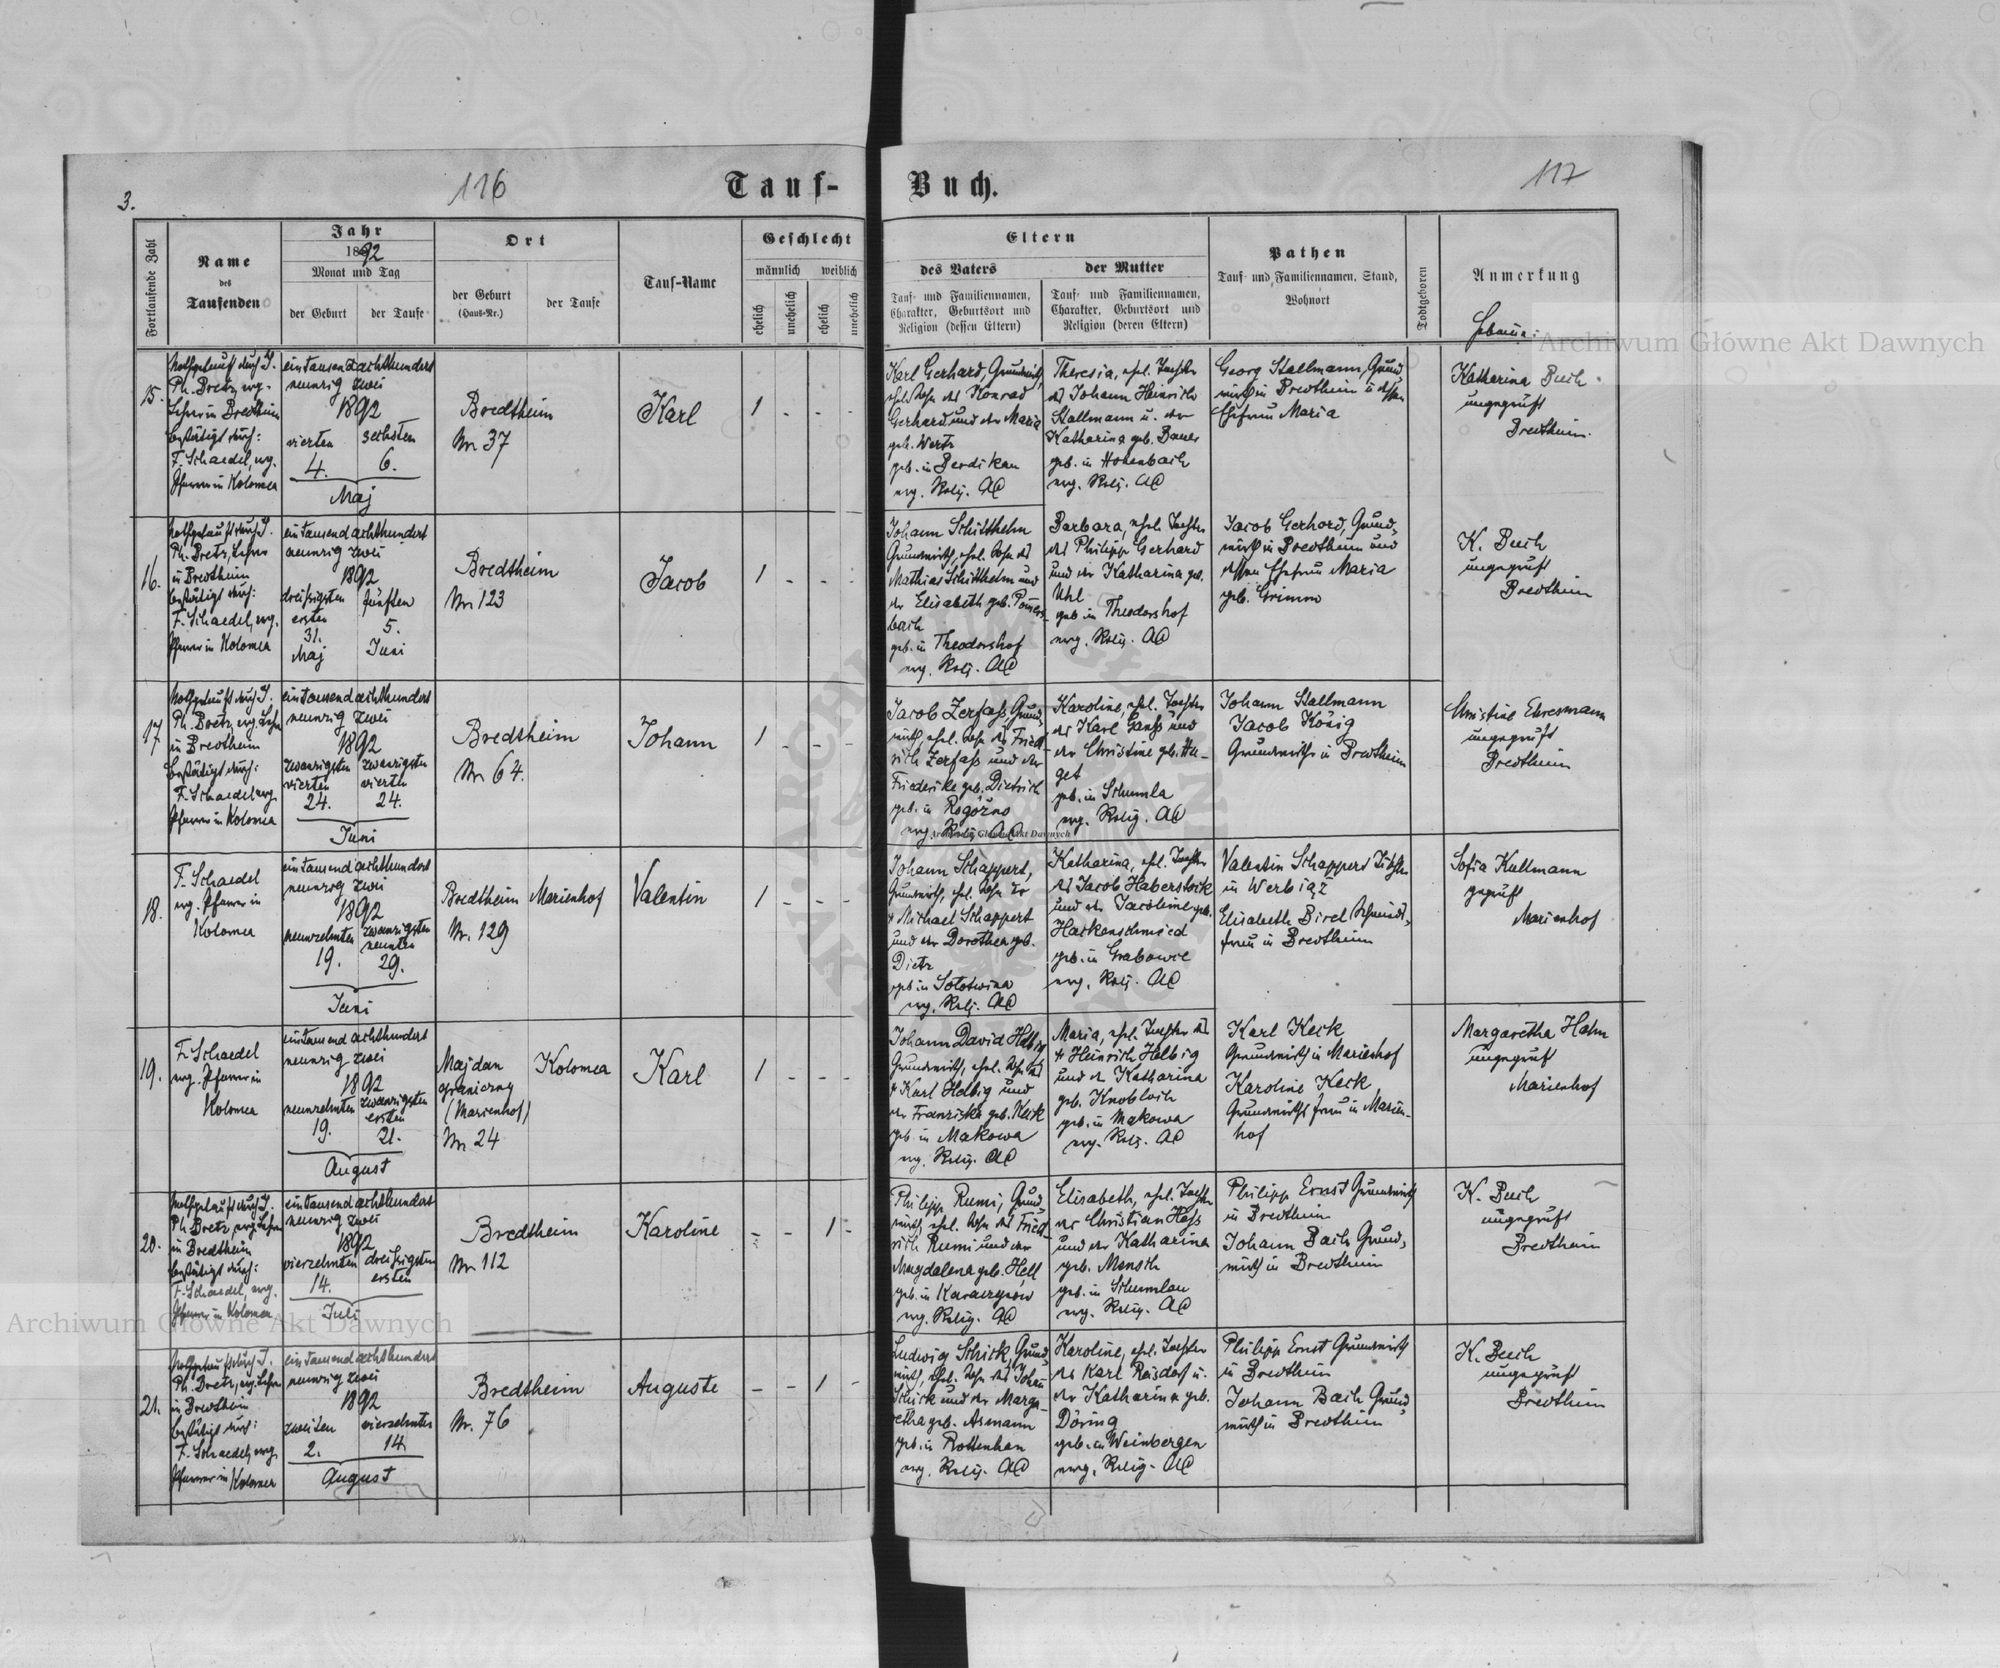 3.
116
Tauf-
Buch.
117
Fortlaufende Zahl
Name
des
Taufenden
Jahr
1892
Monat und Tag
der Geburt
der Taufe
Ort
der Geburt
(Haus-Nr.)
der Taufe
Tauf-Name
Geschlecht
männlich
weiblich
ehelich
unehelich
ehelich
unehelich
Eltern
des Vaters
Tauf- und Familiennamen,
Charakter, Geburtsort und
Religion (dessen Eltern)
der Mutter
Tauf- und Familiennamen,
Charakter, Geburtsort und
Religion (deren Eltern)
Pathen
Tauf- und Familiennamen, Stand,
Wohnort
Todtgeboren
Anmerkung
Archiwum Główne Akt Dawnych
15.
Nothgetauft durch J.
Ph. Bretz, evg.
Lehrer in Bredtheim
bestätigt durch:
F. Schaedel, evg.
Pfarrer in Kolomea
eintausend achthundert
neunzig zwei
1892
vierten
sechsten
4.
6.
Maj
Bredtheim
Nr. 37
Karl
1 - - -
Karl Gerhard, Grundwirth,
ehel. Sohn des Konrad
Gerhard und der Maria
geb. Wertz
geb. in
evg. Relig. AC
Theresia, ehel. Tochter
des Johann Heinrich
Stallmann u. der
Katharina geb. Bauer
geb. in Hohenbach
evg. Relig. AC
Georg Stallmann, Grund-
wirth in Bredtheim u. dessen
Ehefrau Maria
Katharina Buch
ungeprüft
Bredtheim.
16.
Nothgetauft durch J.
Ph. Bretz, Lehrer
in Bredtheim
bestätigt durch:
F. Schaedel, evg.
Pfarrer in Kolomea
eintausend achthundert
neunzig zwei
1892
dreißigsten
fünften
ersten
31.
5.
Maj
Juni
Bredtheim
Nr. 123
Jacob
1 - - -
Johann Schitthelm
Grundwirth, ehel. Sohn des
Mathias Schitthelm und
der Elisabeth geb.
bach
geb. in Theodorshof
evg. Relig. AC
Barbara, ehel. Tochter
des Philipp Gerhard
und der Katharina geb.
Uhl
geb. in Theodorshof
evg. Relig. AC
Jacob Gerhard, Grund-
wirth in Bredtheim und
dessen Ehefrau Maria
geb. Grimm
K. Buch
ungeprüft
Bredtheim
17.
Nothgetauft durch J.
Ph. Bretz, evg. Lehrer
in Bredtheim
bestätigt durch:
F. Schaedel, evg.
Pfarrer in Kolomea
eintausend achthundert
neunzig zwei
1892
zwanzigsten
zwanzigsten
vierten
vierten
24.
24.
Juni
Bredtheim
Nr. 64.
Johann
1 - - -
Jacob Zerfass, Grund-
wirth, ehel. Sohn des Fried-
rich Zerfass und der
Friederike geb. Dietrich
geb. in
evg. Relig. AC
Karoline, ehel. Tochter
des Karl Ganss und
der Christine geb. Hu-
get
geb. in Schumla
evg. Relig. AC
Johann Stallmann
Jacob König
Grundwirthe in Bredtheim
Christine Ehresmann
ungeprüft
Bredtheim
Archiwum Główne Akt Dawnych
18.
F. Schaedel
evg. Pfarrer in
Kolomea
eintausend achthundert
neunzig zwei
1892
neunzehnten
zwanzigsten
neunten
19.
29.
Juni
Bredtheim
Nr. 129
Marienhof
Valentin
1 - - -
Johann Schappert,
Grundwirth, ehel. Sohn des
† Michael Schappert
und der Dorothea geb.
Dietz
geb. in Sołotwina
evg. Relig. AC
Katharina, ehel. Tochter
des Jacob Haberstock
und der Jacobine geb.
Hackenschmied
geb. in Grabowce
evg. Relig. AC
Valentin Schappert
in Werbiąż
Elisabeth Birel, Schmied-
frau in Bredtheim
Sofia Kullmann
geprüft
Marienhof
19.
F. Schaedel
evg. Pfarrer in
Kolomea
eintausend achthundert
neunzig zwei
1892
neunzehnten
zwanzigsten
ersten
19.
21.
August
Majdan
graniczny
(Marienhof)
Nr. 24
Kolomea
Karl
1 - - -
Johann David Helbig
Grundwirth, ehel. Sohn des
† Karl Helbig und
der Franziska geb. Keck
geb. in Makowa
evg. Relig. AC
Maria, ehel. Tochter des
† Heinrich Helbig
und der Katharina
geb. Knobloch
geb. in Makowa
evg. Relig. AC
Karl Keck
Grundwirth in Marienhof
Karoline Keck,
Grundwirths frau in Marien-
hof
Margaretha Hahn
ungeprüft
Marienhof
20.
Nothgetauft durch J.
Ph. Bretz, evg. Lehrer
in Bredtheim
bestätigt durch:
F. Schaedel, evg.
Pfarrer in Kolomea
eintausend achthundert
neunzig zwei
1892
vierzehnten
dreißigsten
ersten
14.
Juli
Bredtheim
Nr. 112
Karoline
- - 1 -
Philipp Rumi, Grund-
wirth, ehel. Sohn des Fried-
rich Rumi und der
Magdalena geb. Hell
geb. in
evg. Relig. AC
Elisabeth, ehel. Tochter
des Christian Hass
und der Katharina
geb. Mensch
geb. in Schumlau
evg. Relig. AC
Philipp Ernst Grundwirth
in Bredtheim
Johann Bach Grund-
wirth in Bredtheim
K. Buch
ungeprüft
Bredtheim
Archiwum Główne Akt Dawnych
21.
Nothgetauft durch J.
Ph. Bretz, evg. Lehrer
in Bredtheim
bestätigt durch:
F. Schaedel, evg.
Pfarrer in Kolomea
eintausend achthundert
neunzig zwei
1892
zweiten
vierzehnten
2.
14.
August
Bredtheim
Nr. 76
Auguste
- - 1 -
Ludwig Schick, Grund-
wirth, ehel. Sohn des Johann
Schick und der Marga-
retha geb. Asmann
geb. in Rottenhan
evg. Relig. AC
Karoline, ehel. Tochter
des Karl Reisdorf u.
der Katharina geb.
Döring
geb. in Weinbergen
evg. Relig. AC
Philipp Ernst Grundwirth
in Bredtheim
Johann Bach Grund-
wirth in Bredtheim
K. Buch
ungeprüft
Bredtheim